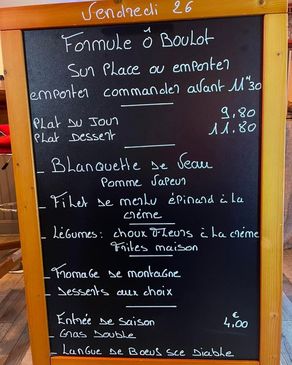 Vendredi 26
Formule Ô Boulot
Sur Place ou emporter
emporter commander avant 11H30
Plat du Jour 9.80
Plat Dessert 11.80
- Blanquette de Veau
Pomme Vapeur
- Filet de merlu épinard à la
crème
- Légumes: choux fleurs à la crème
Frites maison
- Fromage de montagne
- Desserts aux choix
- Entrée de saison 4,00 €
- Gras Double
- Langue de Boeuf sce Diable